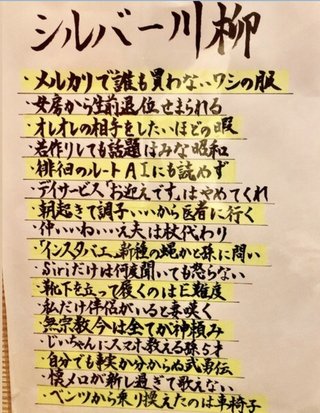 シルバー川柳
・メルカリで誰も買わないワシの服
・女房から生前退位せまられる
・オレオレの相手をしたいほどの暇
・若作りしても話題はみな昭和
・徘徊のルートAIにも読めず
・デイサービス「お迎えです」はやめてくれ
・朝起きて調子いいから医者に行く
・仲いいねいいえ夫は杖代わり
・インスタバエ新種の蝿かと孫に問い
・Siriだけは何度聞いても怒らない
・靴下を立って履くのはE難度
・私だけ伴侶がいると妻嘆く
・無宗教今は全てが神頼み
・じいちゃんにスマホ教える孫5才
・自分でも事実か分からぬ武勇伝
・懐メロが新し過ぎて歌えない
・ベンツから乗り換えたのは車椅子